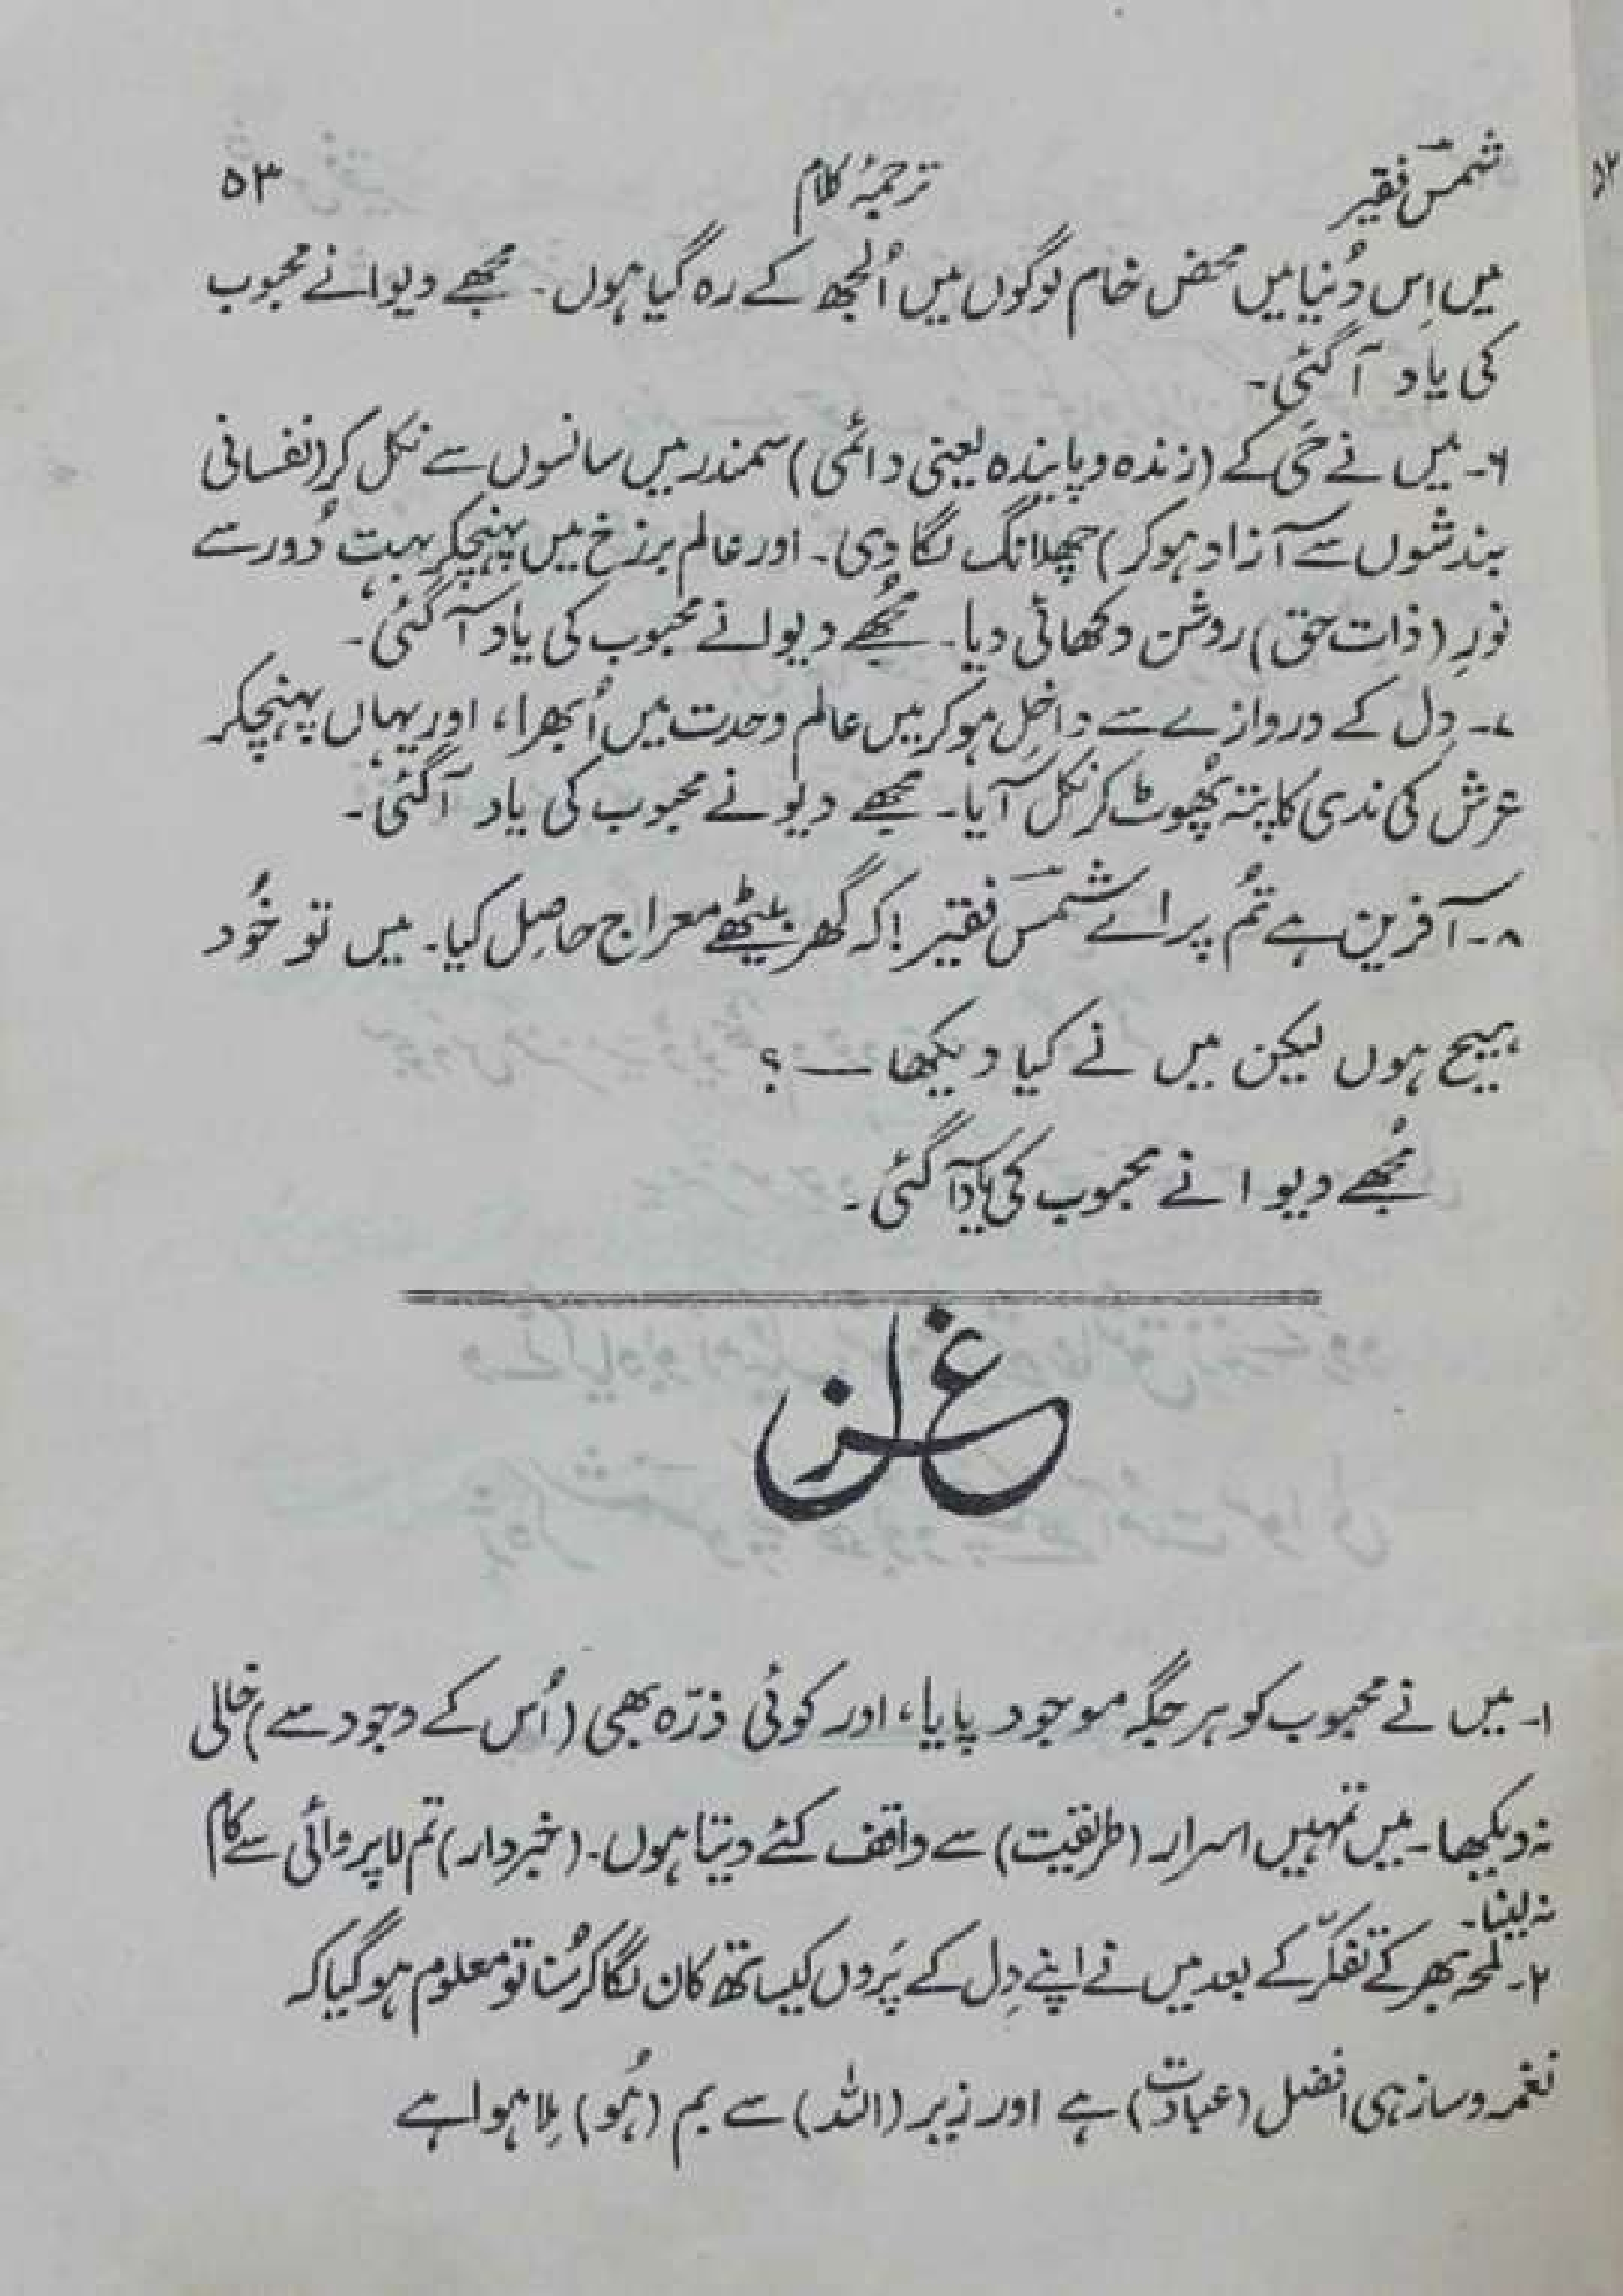 شمسؔ فقیر ترجمۂ کلام ۵۳
۵۲
میں اِس دُنیا میں محض خام لوگوں میں اُلجھ کے رہ گیا ہوں۔ مجھے دیوانے محبوب
کی یاد آ گئی۔
۶۔ میں نے حَی کے (زندہ و پایندہ یعنی دائمی) سمندر میں سانسوں سے نکل کر (نفسانی
بندشوں سے آزاد ہو کر) چھلانگ لگا دی۔ اور عالم برزخ میں پہنچکر بہت دُور سے
نُورِ (ذات حق) روشن دکھائی دیا۔ مُجھے دیوانے محبوب کی یاد آ گئی۔
۷۔ دِل کے دروازے سے داخِل ہو کر میں عالم وحدت میں اُبھرا، اور یہاں پہنچکر
عرش کی ندی کا پتہ پھُوٹ کر نکل آیا۔ مجھے دیونے محبوب کی یاد آ گئی۔
۸۔ آفرین ہے تُم پر اے شمسؔ فقیر! کہ گھر بیٹھے معراج حاصِل کیا۔ میں تو خُود
ہیچ ہوں لیکن میں نے کیا دیکھا ــــ؟
مُجھے دیوانے محبوب کی یاد آ گئی۔
غزل
۱۔ میں نے محبوب کو ہر جگہ موجود پایا، اور کوئی ذرّہ بھی (اُس کے وجود سے) خالی
نہ دیکھا۔ میں تمہیں اسرار (طریقیت) سے واقف کئے دیتا ہوں۔ (خبردار) تم لاپروائی سے کام
نہ لینا۔
۲۔ لمحہ بھر کے تفکّر کے بعد میں نے اپنے دِل کے پَروں کیساتھ کان لگا کر سُنا تو معلوم ہو گیا کہ
نغمہ و ساز ہی افضل (عبادت) ہے اور زیر (اللہ) سے بم (ہُو) مِلا ہوا ہے